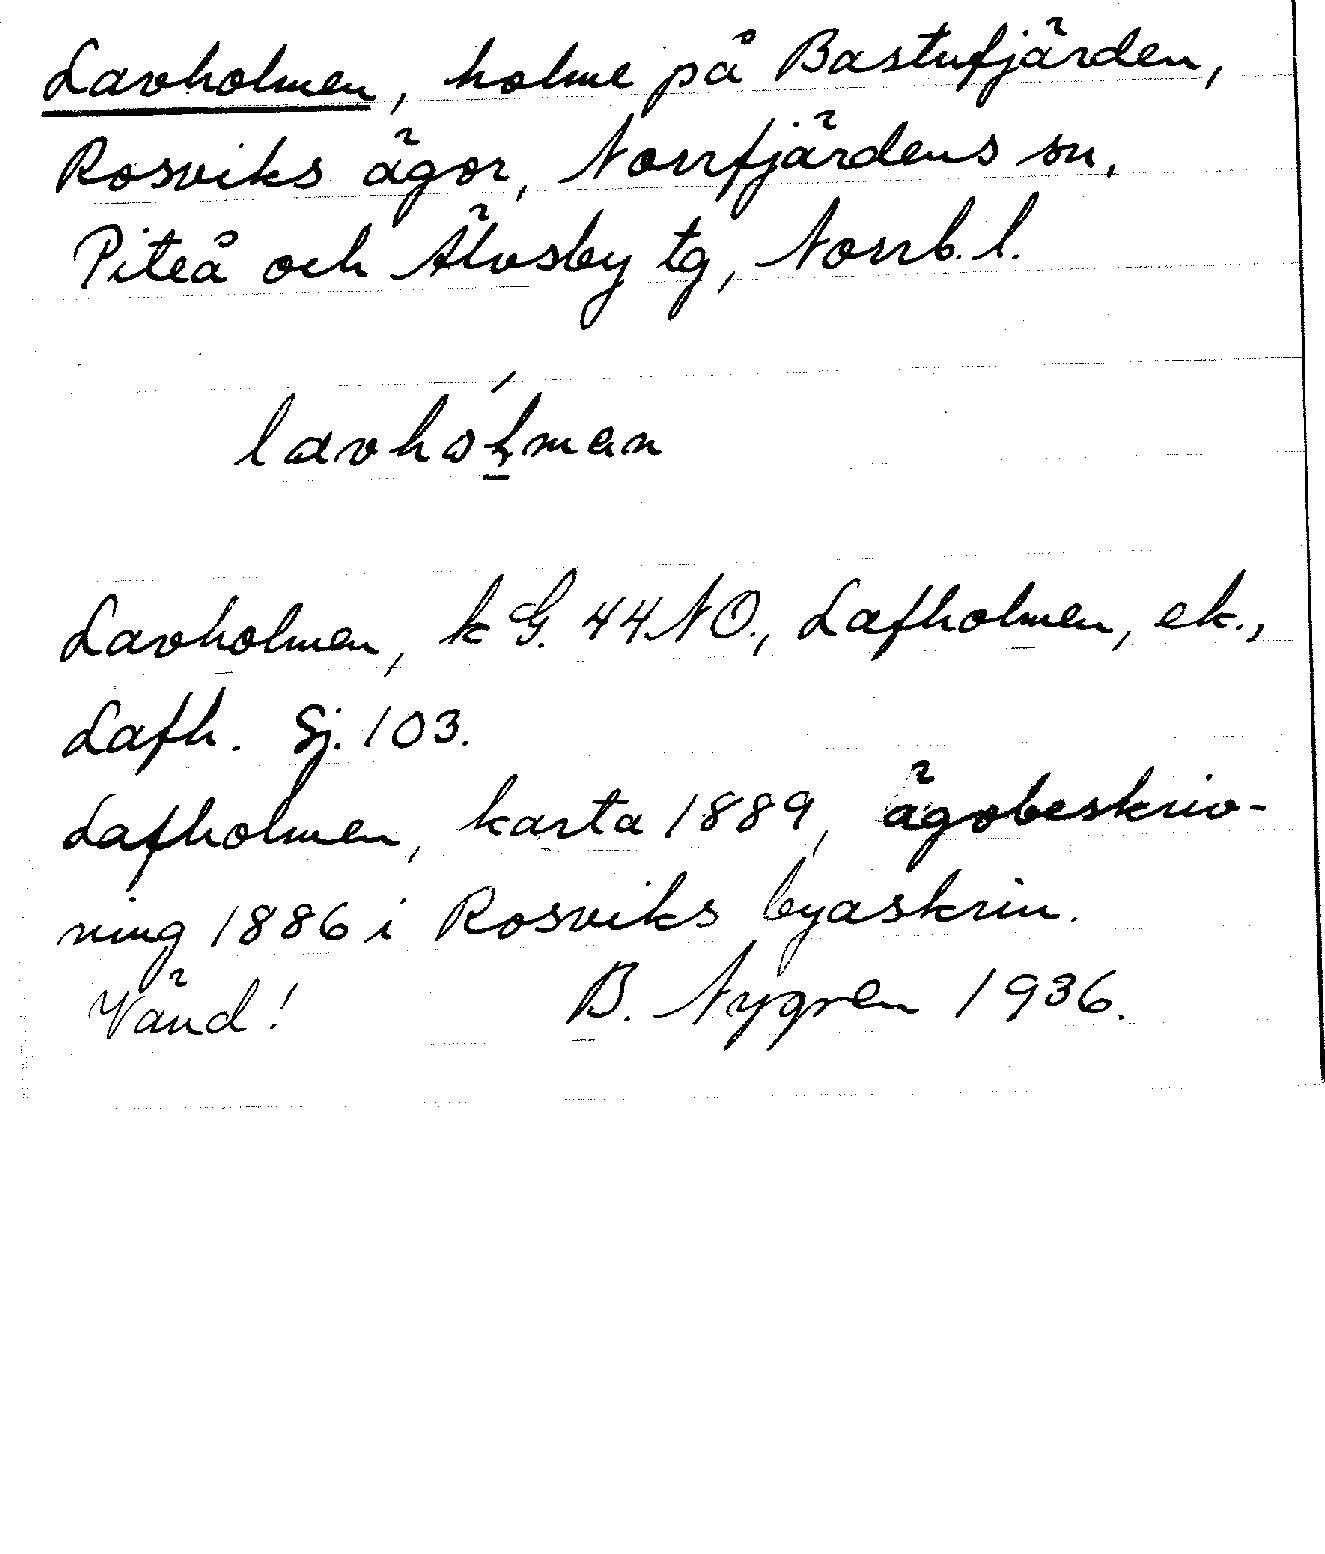 Lavholmen, holme på Bastufjärden,
Rosviks ägor, Norrfjärdens sn,
Piteå och Älvsby tg, Norrb. l.
lavhólman
Lavholmen, k G. 44 NO., Lafholmen, ek.,
Lafh. Sj. 103.
Lafholmen, karta 1889, ägobeskriv-
ning 1886 i Rosviks byaskrin.
Vänd! B. Nygren 1936.